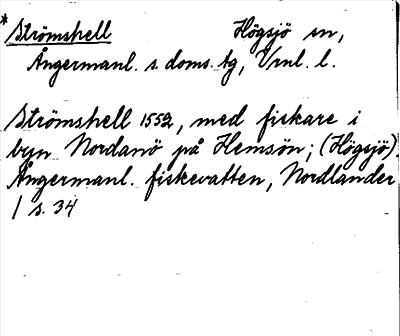 *Strömshell Högsjö sn,
Ångermanl. s. doms. tg, Vrnl. l.
Strömshell 1552, med fiskare i
byn Nordanö på Hemsön; (Högsjö).
Ångermanl. fiskevatten, Nordlander
/ s. 34